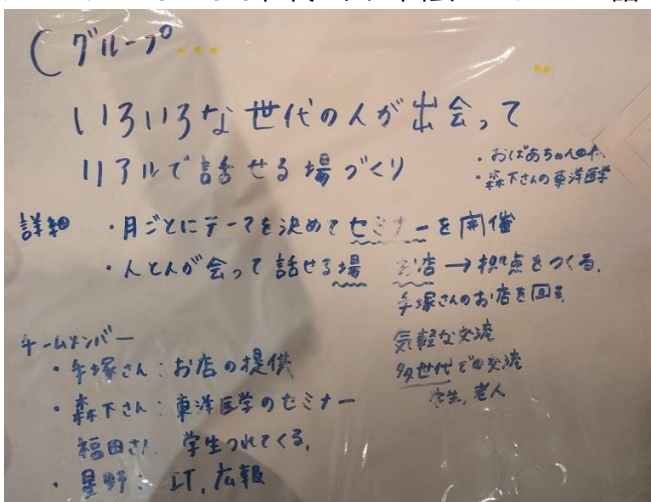 Cグループ
いろいろな世代の人が出会って
リアルで話せる場づくり
・おばあちゃんの
・森下さんの東洋医学
詳細 ・月ごとにテーマを決めてセミナーを開催
・人と人が会って話せる場 お店→拠点をつくる。
手塚さんのお店を回る
気軽な交流
多世代での交流
学生、老人
チームメンバー
・手塚さん:お店の提供
・森下さん:東洋医学のセミナー
福田さん 学生つれてくる。
・星野:IT, 広報